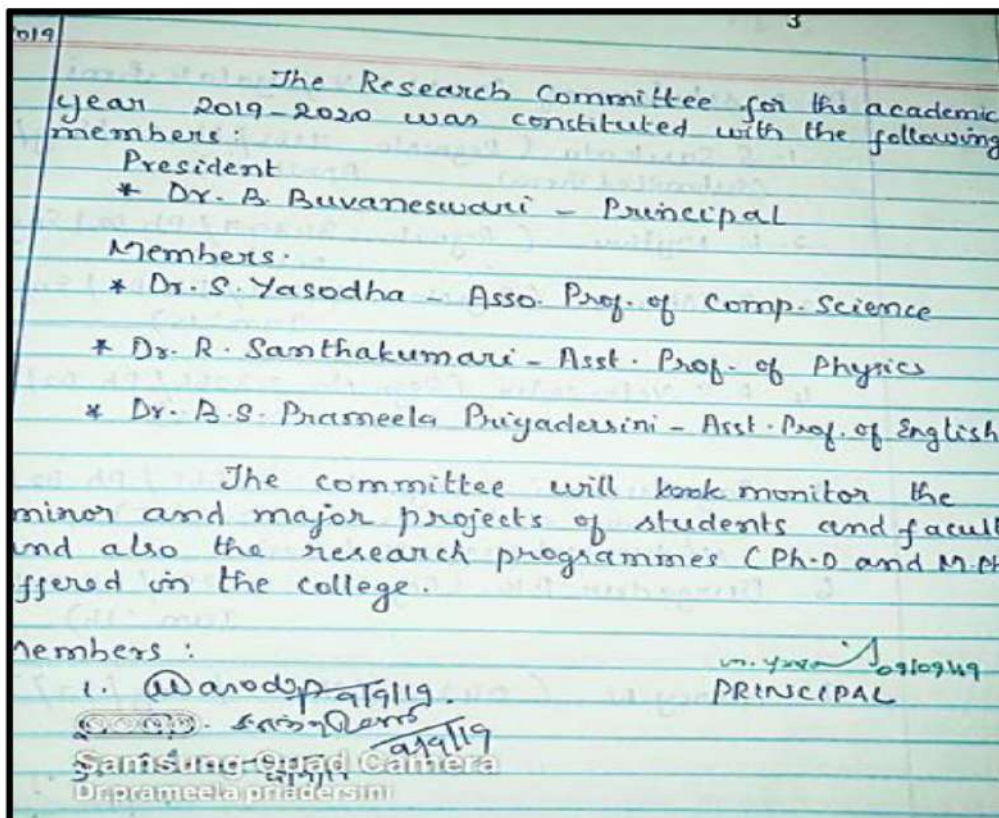 3
019
The Research Committee for the academic
year 2019-2020 was constituted with the following
members:
President
* Dr. B. Buvaneswari - Principal
Members:
* Dr. S. Yasodha - Asso. Prof. of Comp. Science
* Dr. R. Santhakumari - Asst. Prof. of Physics
* Dr. B.S. Prameela Priyadersini - Asst. Prof. of English
The committee will monitor the
minor and major projects of students and facult
nd also the research programmes (Ph.D and M.Ph
ffered in the college.
Members :
09/09/19
PRINCIPAL
1. 9/9/19.
9/9/19
Samsung Quad Camera
Dr.prameela priadersini